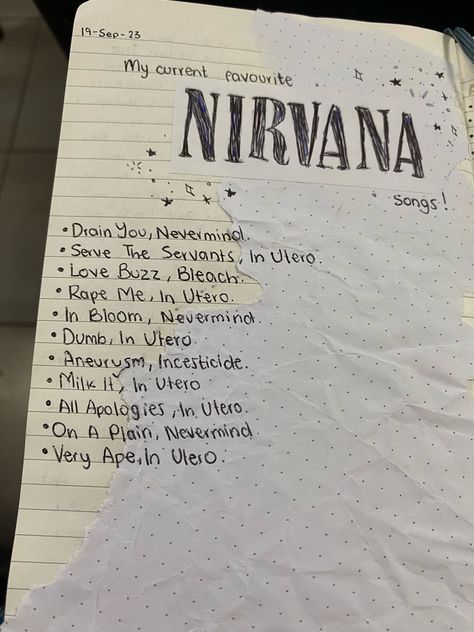 19-Sep-23
My current favourite
NIRVANA
songs!
• Drain You, Nevermind.
• Serve The Servants, In Utero.
• Love Buzz, Bleach.
• Rape Me, In Utero.
• In Bloom, Nevermind.
• Dumb, In Utero.
• Aneurysm, Incesticide.
• Milk It, In Utero
• All Apologies, In Utero.
• On A Plain, Nevermind
• Very Ape, In Utero.